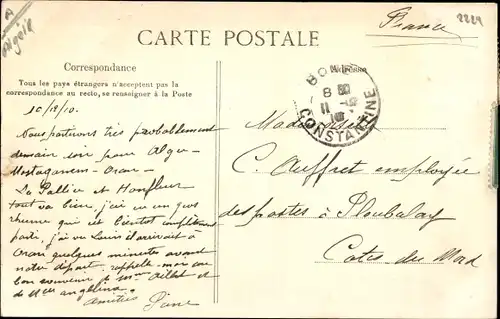 Algérie
France
2229
CARTE POSTALE
Correspondance
Adresse
Tous les pays étrangers n'acceptent pas la
correspondance au recto, se renseigner à la Poste
10/12/10.
Nous partirons très probablement
demain soir pour Alger-
Mostaganem - Oran -
La Pallice et Honfleur
tout va bien, j'ai eu un gros
rhume qui est bientôt complètement
parti, j'ai vu Louis il arrivait à
Oran quelques minutes avant
notre départ. rappelle-moi au
bon souvenir de Mme et
de Melles Angelina.
Amitiés
BO
8 30
11 -12
10
CONSTANTINE
Mademoiselle
C. Auffret employée
des postes à Ploubalay
Cotes du Nord